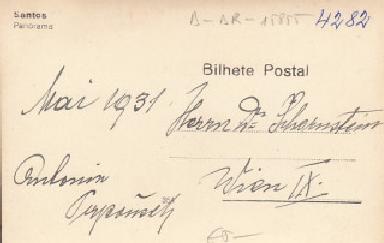 Santos
Panôrama
B-AR-15855 4282
Bilhete Postal
Mai 1931
Herrn Dr Scharnstein
Antonin
Wien IX.